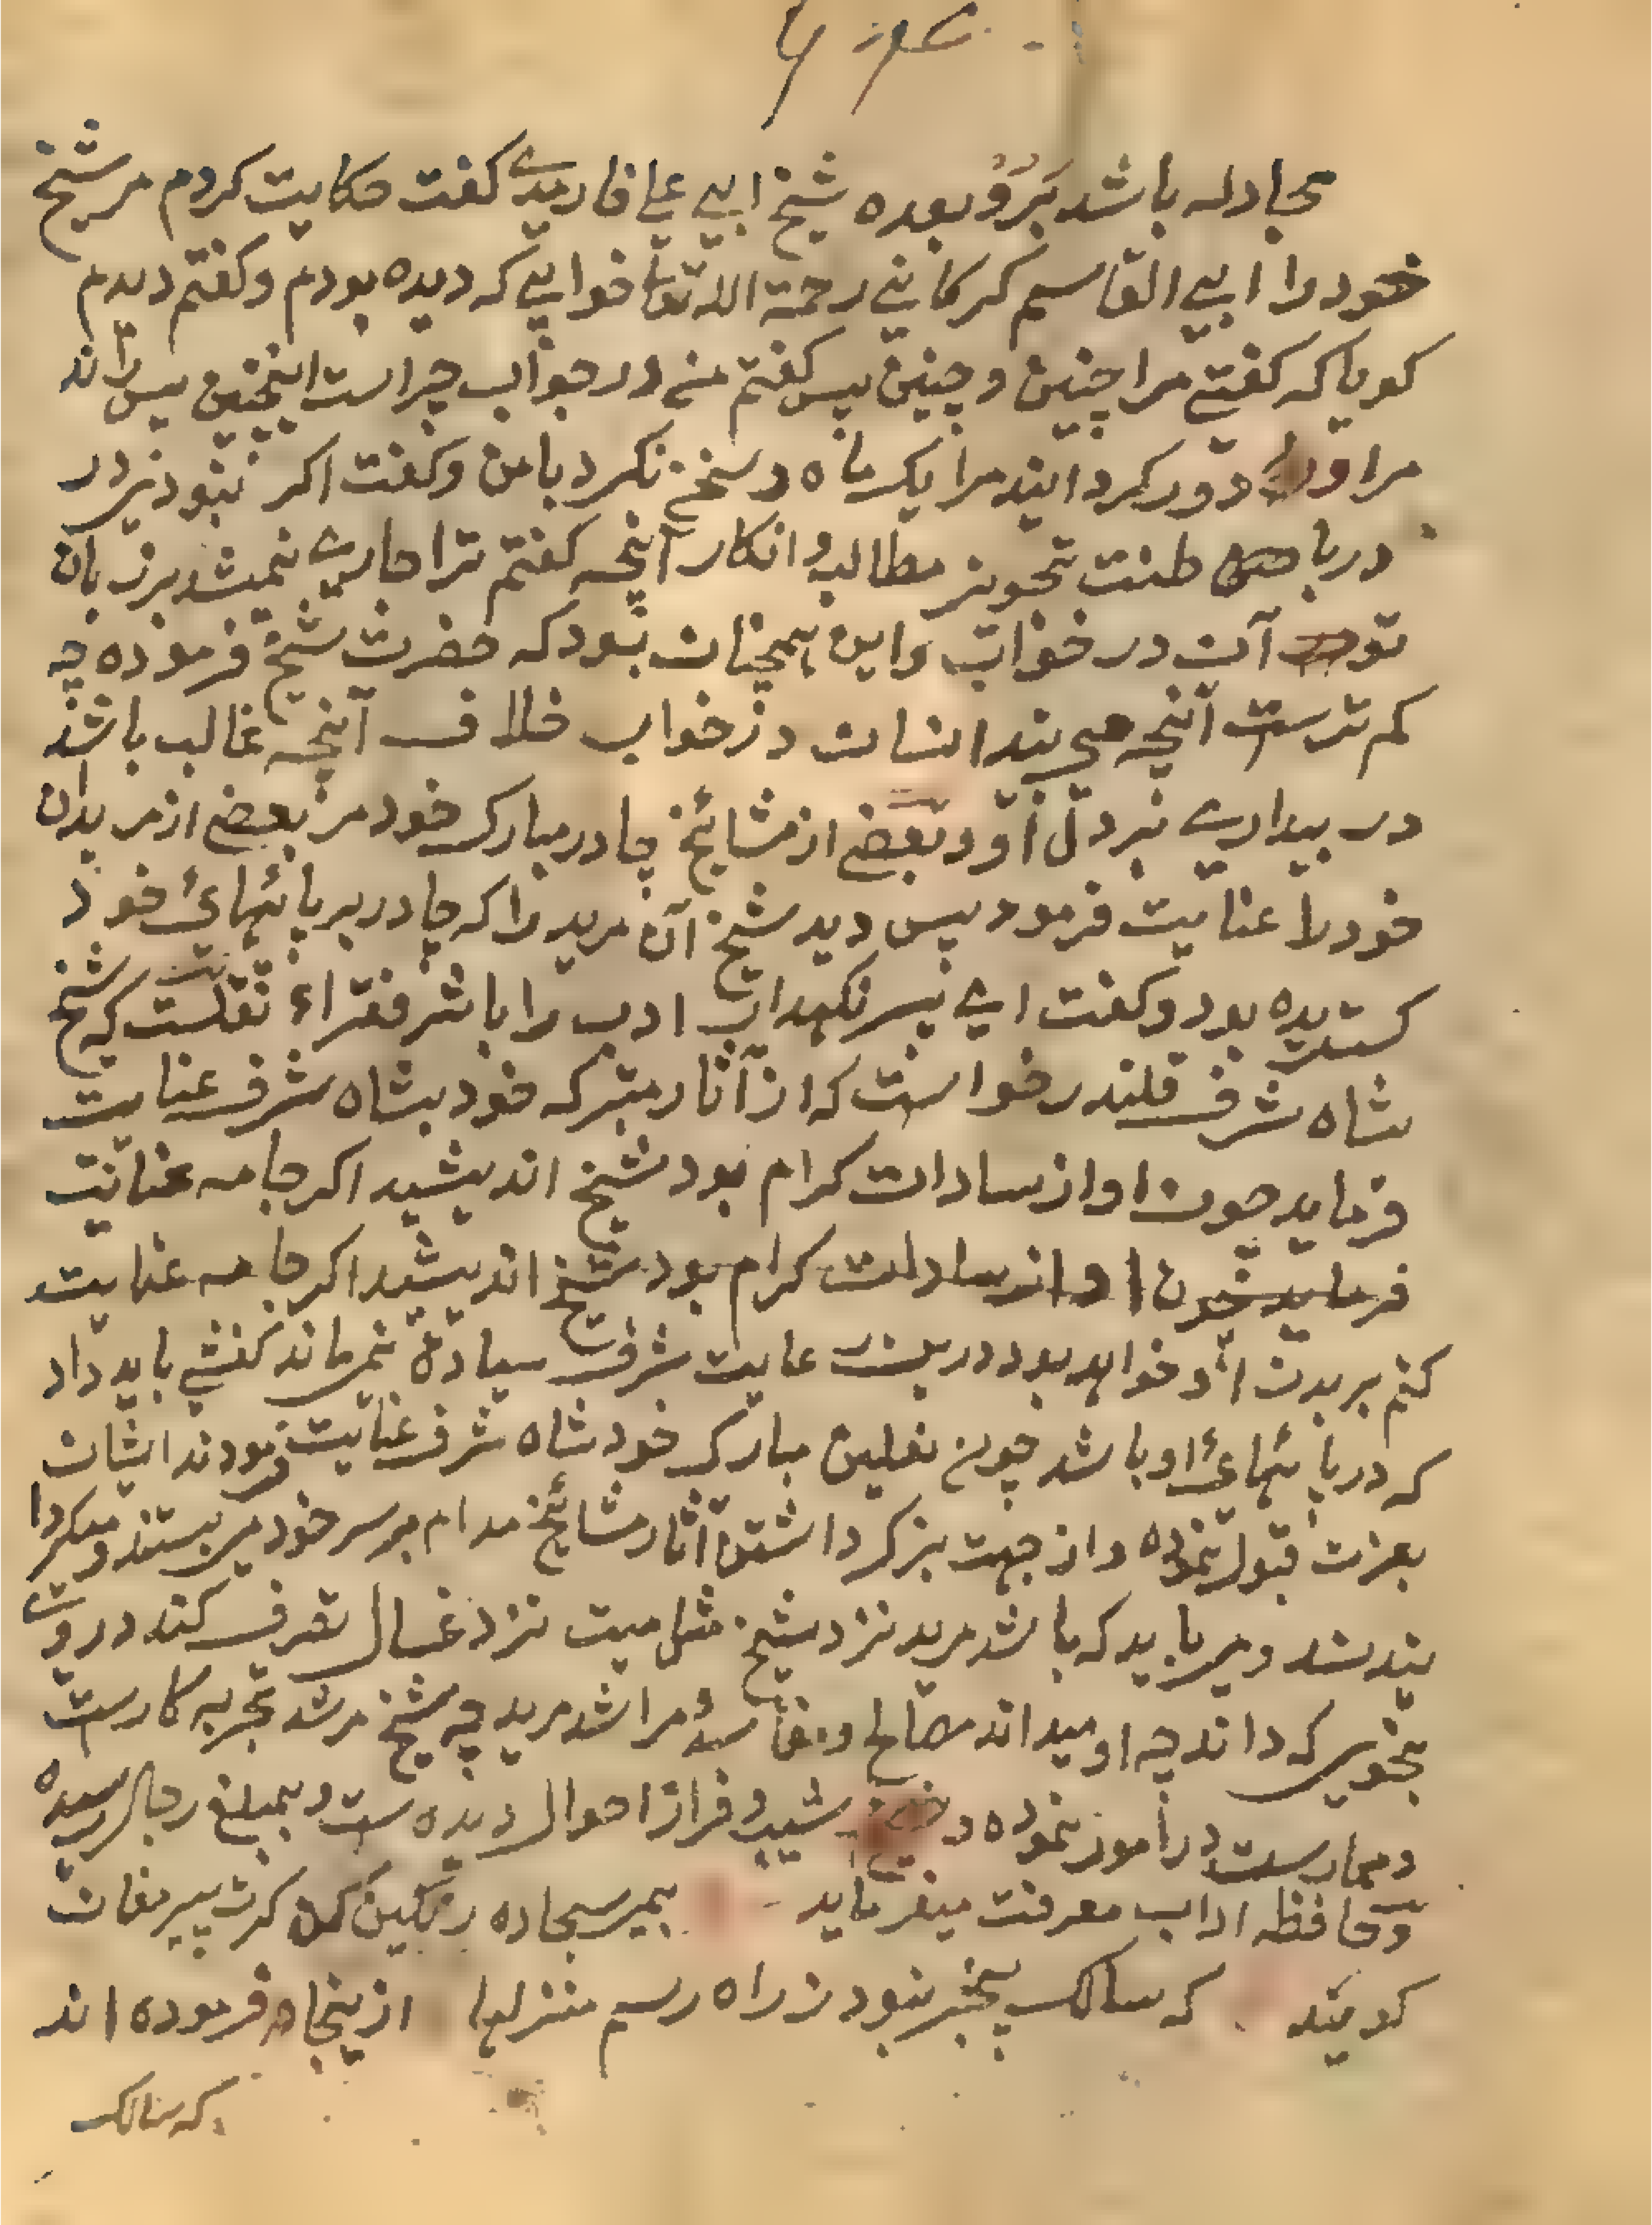 مجادله باشد برو بعده شیخ ابی علی فارمدی گفت حکایت کردم مر شیخ
خود را ابی القاسم کرکانی رحمة الله تعالی خوابی که دیده بودم و گفتم دیدم
گویا که گفتی مرا چنین و چنین پس گفتم من در جواب چراست اینچنین پس راند
مرا و دور کردانید مرا یک ماه و سخن نکرد با من و گفت اگر نبودی در
در باطنت تجویز مطالبه و انکار آنچه گفتم ترا جاری نمیشد بر زبان
تو آن در خواب و این همچنان بود که حضرت شیخ فرموده چه
کم ترست آنچه می بیند انسان در خواب خلاف آنچه غالب باشد
در بیداری بر دل او و بعضی از مشائخ چادر مبارک خود مر بعضی از مریدان
خود را عنایت فرمود پس دید شیخ آن مرید را که چادر بر پائهائ خود
کستریده بود و گفت ای پسر نکهدار ادب را با شر فقراء نقلست که شیخ
شاه شرف قلندر خواست که از آثار متبرکه خود بشاه شرف عنایت
فرماید چون او از سادات کرام بود شیخ اندیشید اکر جامه عنایت
فرماید چون او از سادات کرام بود شیخ اندیشید اکر جامه عنایت
کنم بر بدن او خواهد بود درین عایت شرف سیادة نمی ماند کفشی باید داد
که در پائهائ او باشد چون نعلین مبارک خود شاه شرف عنایت فرمودند ایشان
بعزت قبول نموده و از جهت بزرک داشتن آثار مشائخ مدام بر سر خود می بستند و میکردا
نیدند و می باید که باشد مرید نزد شیخ مثل میت نزد غسال تصرف کند در وی
بنحوی که داند چه او میداند مصالح و مفاسد مراشد مرید چه شیخ مرشد تجربه کارست
و ممارست در امور نموده و شیب و فراز احوال دیده ست و بمبلغ رجال رسیده
و محافظه اداب معرفت میفرماید بمی سجاده رنگین کن کرت پیر مغان
کویند که سالک بیخبر نبود ز راه رسم منزلها ازینجا فرموده اند
که سالک